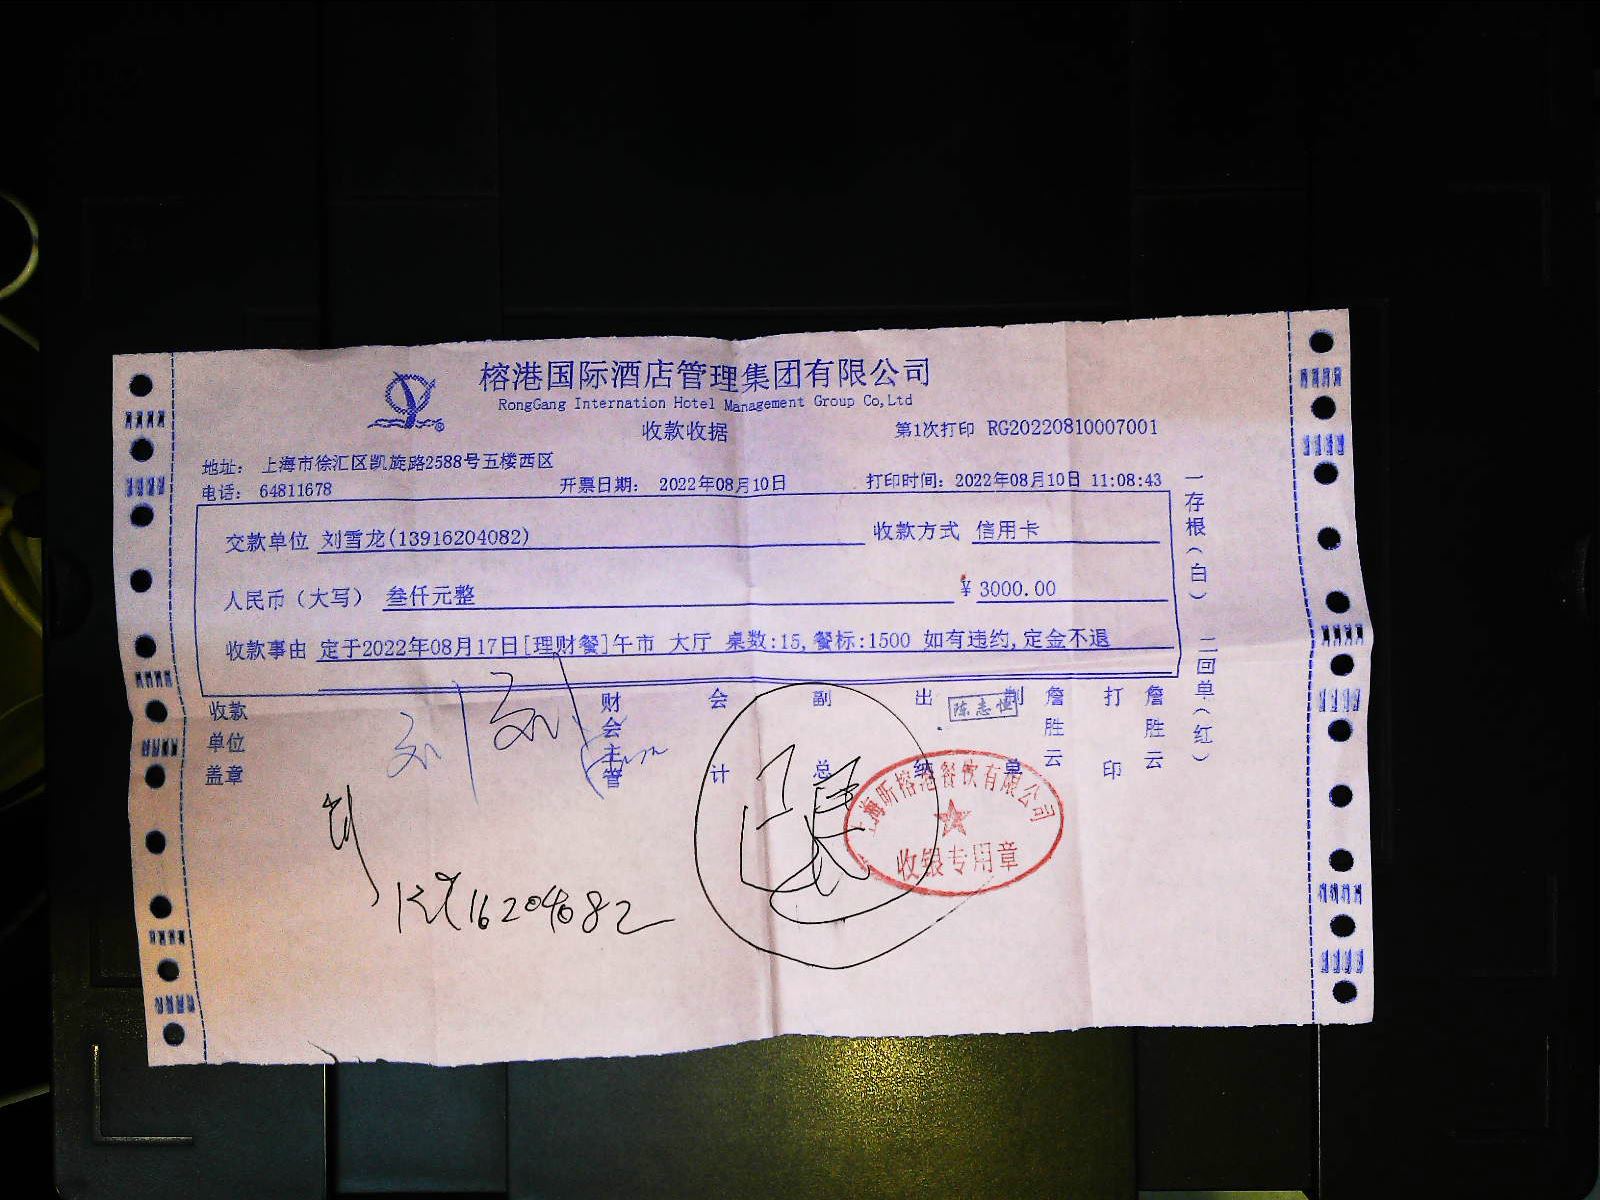 榕港国际酒店管理集团有限公司
RongGang Internation Hotel Management Group Co,Ltd
收款收据
第1次打印 RG20220810007001
地址： 上海市徐汇区凯旋路2588号五楼西区
电话： 64811678 开票日期： 2022年08月10日 打印时间：2022年08月10日 11:08:43
交款单位 刘雪龙(13916204082) 收款方式 信用卡
人民币（大写） 叁仟元整 ¥ 3000.00
收款事由 定于2022年08月17日[理财餐]午市 大厅 桌数:15,餐标:1500 如有违约,定金不退
一存根（白） 二回单（红）
收款单位盖章
财会主管
会计
副总
出纳
陈志恒
制单
詹胜云
打印
詹胜云
刘
刘
13916204082
上海昕榕港餐饮有限公司
收银专用章